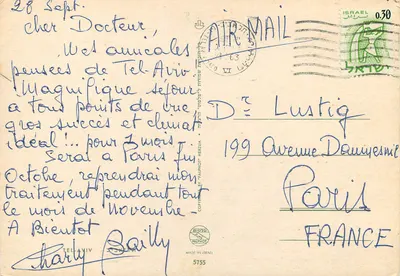 28 Sept.
cher Docteur,
Mes amicales
pensées de Tel Aviv
Magnifique séjour
à tous points de vue
gros succès et climat
idéal!.. pour 3 mois.
Serai à Paris fin
Octobre, reprendrai mon
traitement pendant tout
le mois de Novembre-
A Bientôt
Charly Bailly
TEL-AVIV
AIR MAIL
ISRAEL
0.30
ישראל
Dr Lustig
199 Avenue Daumesnil
Paris
FRANCE
MADE IN ISRAEL
5755